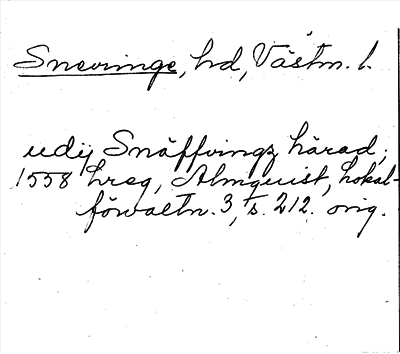 Snevringe, hd, Västm. l.
udij Snäffvingz härad;
1558 hreg, Almquist, Lokal-
förvaltn. 3, s. 212. orig.